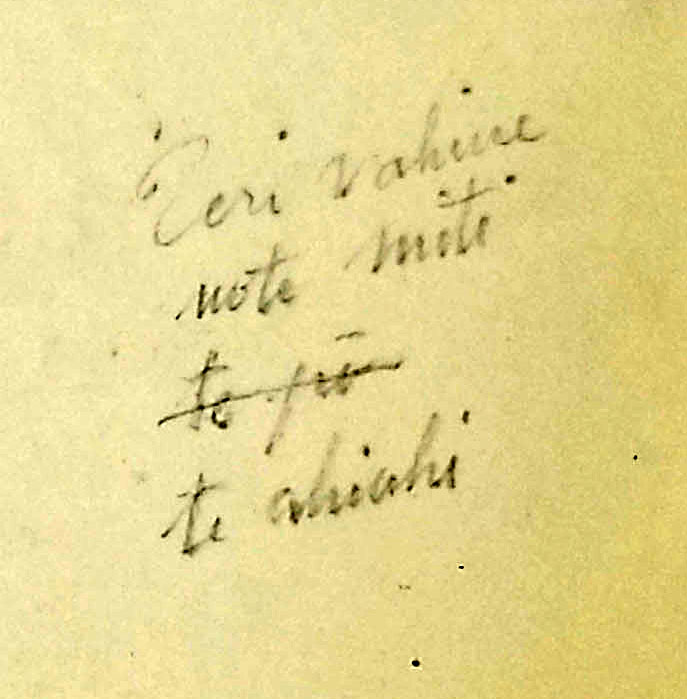 Teri vahine
note miti
te pō
te ahiahi